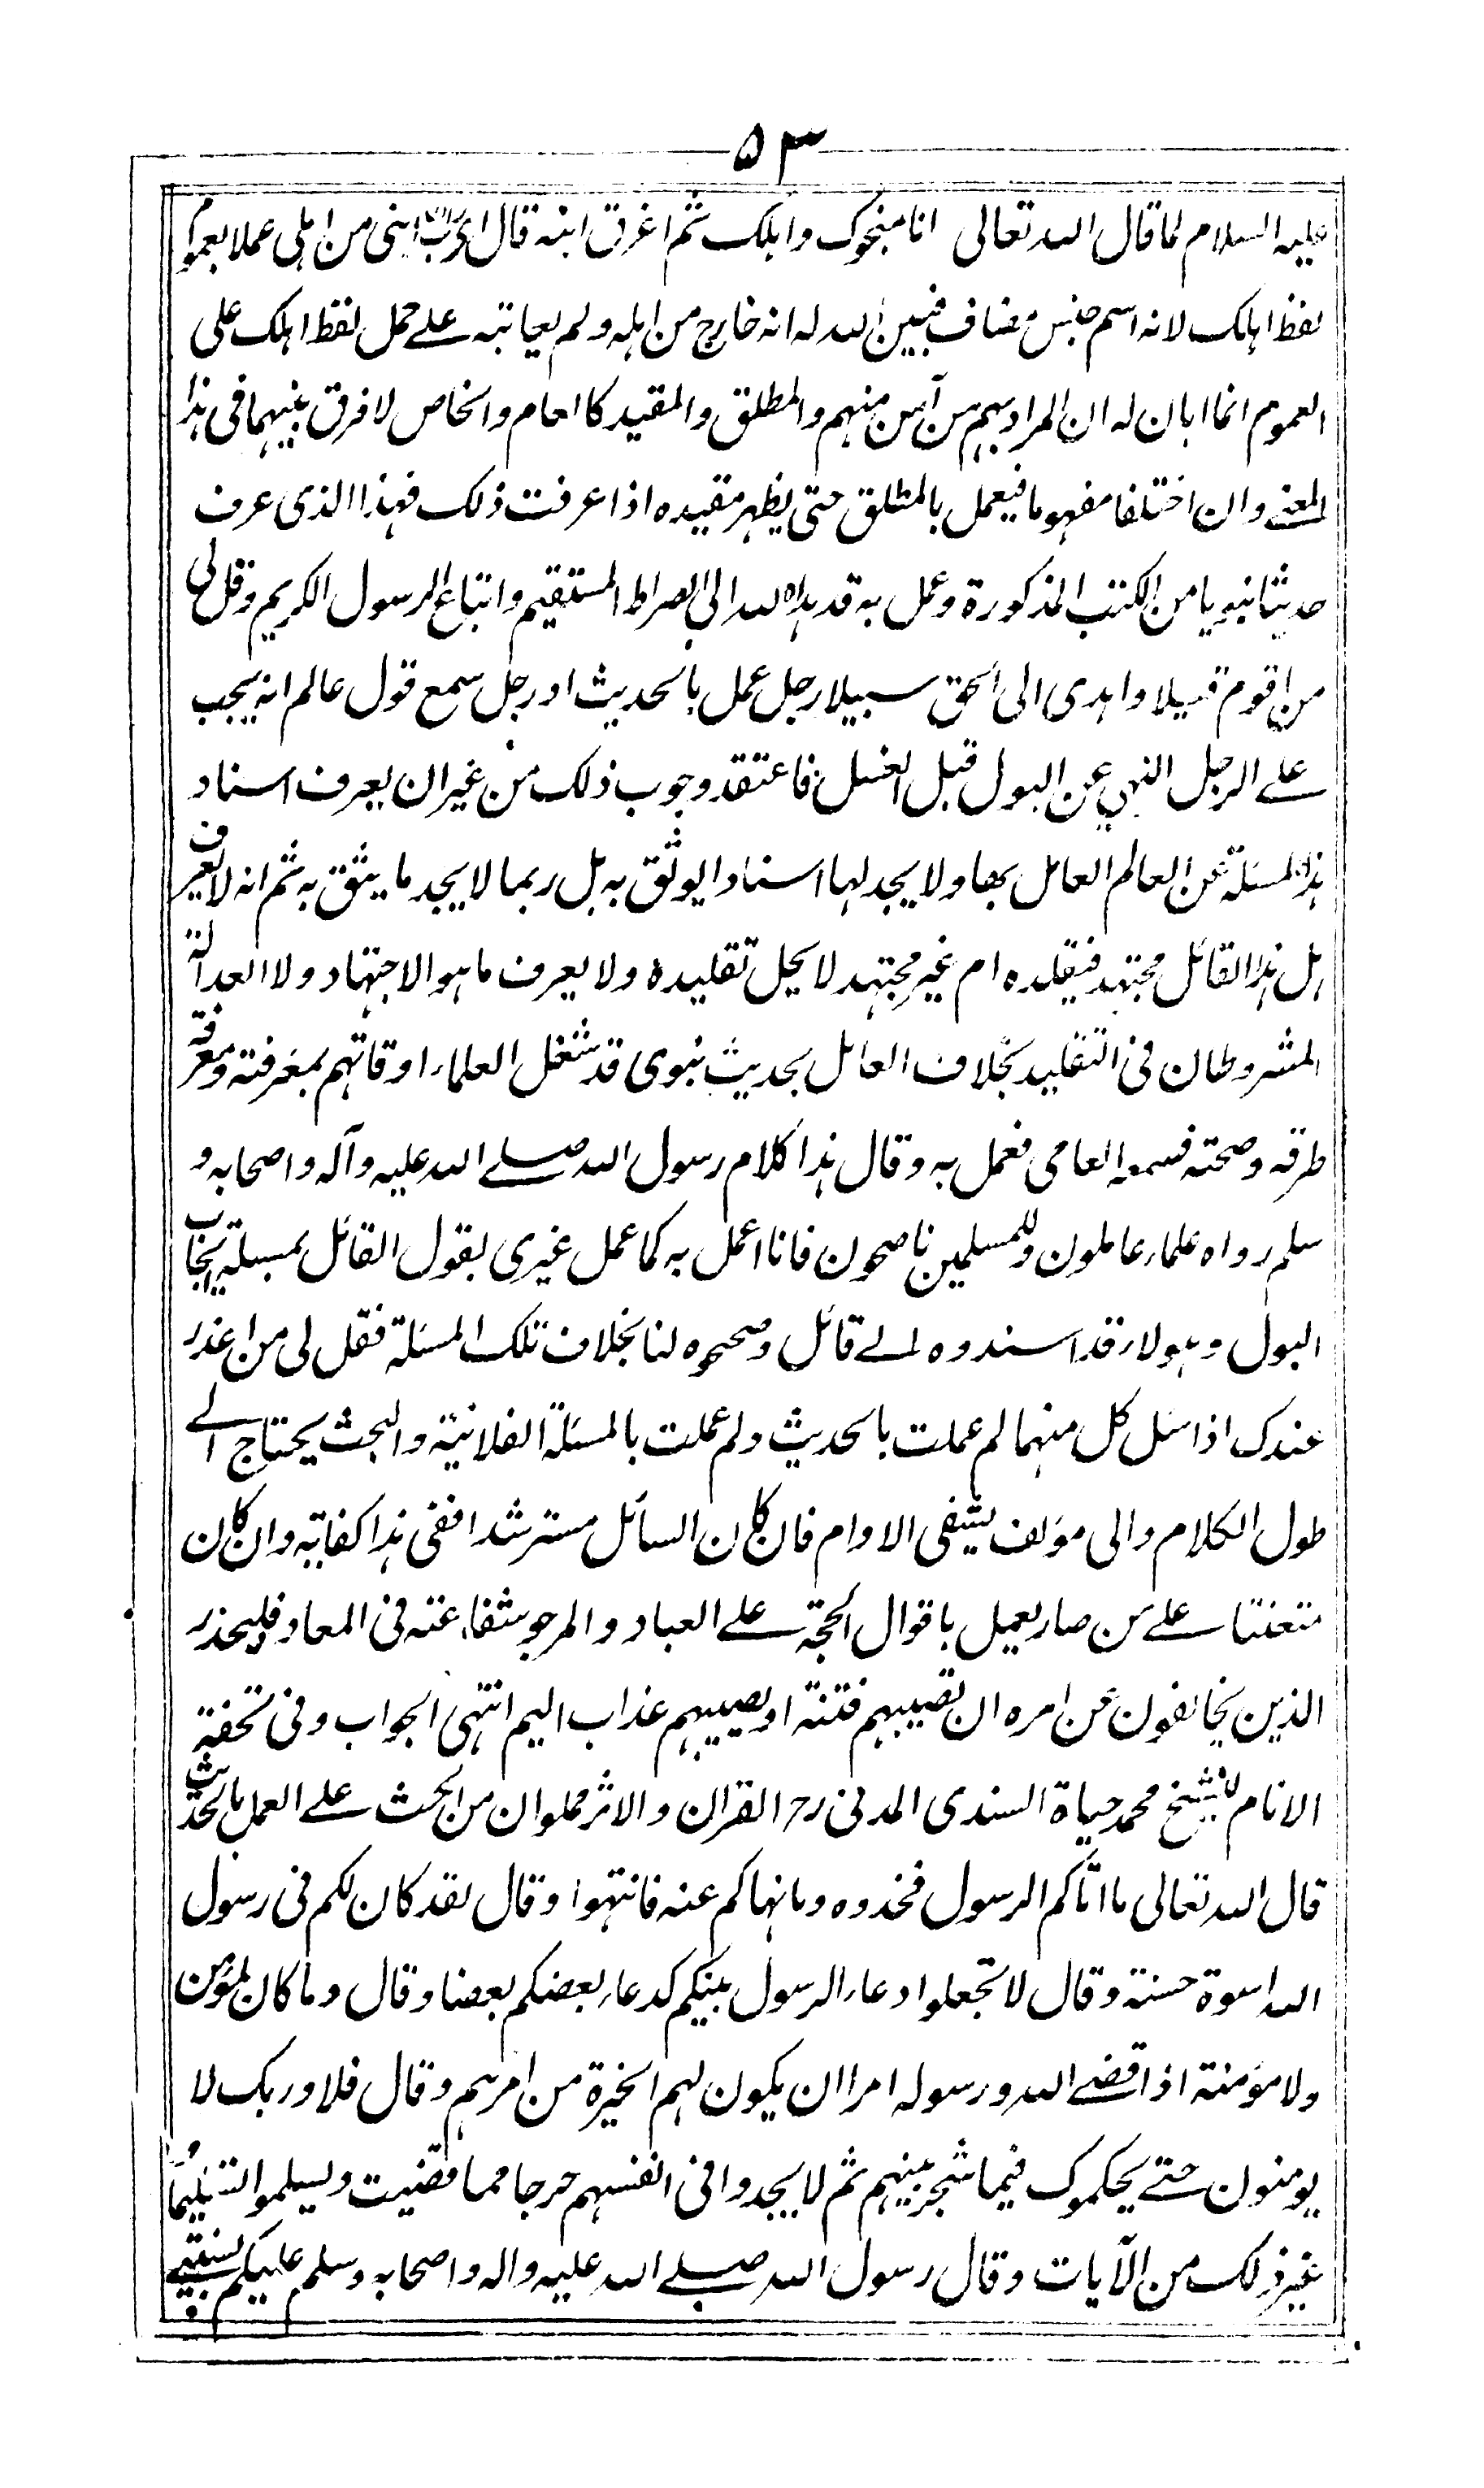 ٥٣
عليه السلام لما قال الله تعالى انا منجوك واهلك ثم اغرق ابنه قال اي رب ان ابنى من اهلى عملا بعموم
لفظ اهلك لانه اسم جنس مضاف فبين الله له انه خارج من اهله ولم يعاتبه على حمل لفظ اهلك على
العموم انما ابان له ان المراد بهم من آمن منهم والمطلق والمقيد كالعام والخاص لا فرق بينهما فى هذا
المعنى وان اختلفا مفهوما فيعمل بالمطلق حتى يظهر مقيده اذا عرفت ذلك فهذا الذى عرف
حديثا نبويا من الكتب المذكورة وعمل به قد هداه الله الى الصراط المستقيم واتباع الرسول الكريم وقل لى
من اقوم قيلا واهدى الى الحق سبيلا رجل عمل بالحديث او رجل سمع قول عالم انه يجب
على الرجل النهي عن البول قبل الغسل فاعتقد وجوب ذلك من غير ان يعرف اسناد
هذه المسئلة عن العالم العامل بها ولا يجد لها اسنادا يوثق به بل ربما لا يجد ما يثق به ثم انه لا يعرف
هل هذا القائل مجتهد فيقلده ام غير مجتهد لا يحل تقليده ولا يعرف ما هو الاجتهاد ولا العدالة
المشروطان فى التقليد بخلاف العامل بحديث نبوى قد شغل العلماء اوقاتهم بمعرفته ومعرفة
طرقه وصحته فسمعه العامى فعمل به وقال هذا كلام رسول الله صلى الله عليه وآله واصحابه و
سلم رواه علماء عاملون وللمسلمين ناصحون فانا اعمل به كما عمل غيرى بقول القائل بمسئلة ايجاب
البول وهولاء قد اسندوه الى قائل وصححوه لنا بخلاف تلك المسئلة فقل لى من اعذر
عندك اذا سئل كل منهما لم عملت بالحديث ولم عملت بالمسئلة الفلانية والبحث يحتاج الى
طول الكلام والى مؤلف يشفى الاوام فان كان السائل مسترشدا ففى هذا كفاية وان كان
متعنتا على من صار يعمل باقوال الحجة على العباد والمرجو شفاعته فى المعاد فليحذر
الذين يخالفون عن امره ان تصيبهم فتنة او يصيبهم عذاب اليم انتهى الجواب وفى تحفة
الانام للشيخ محمد حياة السندى المدنى رح القران والاثر مملوان من الحث على العمل بالحديث
قال الله تعالى ما اتاكم الرسول فخذوه وما نهاكم عنه فانتهوا وقال لقد كان لكم فى رسول
الله اسوة حسنة وقال لا تجعلوا دعاء الرسول بينكم كدعاء بعضكم بعضا وقال وما كان لمؤمن
ولا مؤمنة اذا قضى الله ورسوله امرا ان يكون لهم الخيرة من امرهم وقال فلا وربك لا
يومنون حتى يحكموك فيما شجر بينهم ثم لا يجدوا فى انفسهم حرجا مما قضيت ويسلموا تسليما و
غير ذلك من الآيات وقال رسول الله صلى الله عليه واله واصحابه وسلم عليكم بسنتي